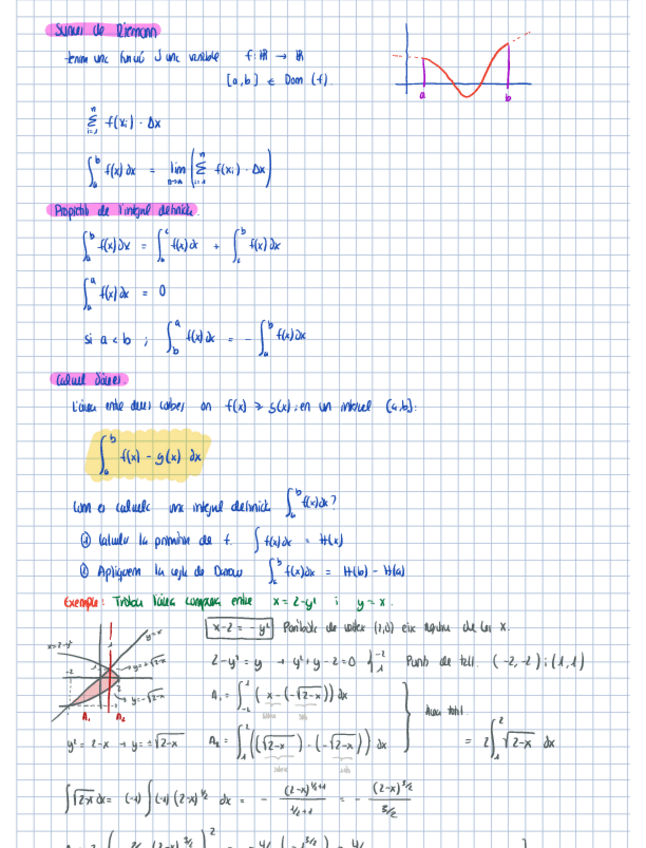 Sumes de Riemann
tenim una funció d'una variable f: ℝ → ℝ
[a,b] ∈ Dom (f).
a b
n Σ i=1 f(xi) · Δx
∫_a^b f(x) dx = lim n→∞ (Σ_{i=1}^n f(xi) · Δx)
Propietats de l'integral definida.
∫_a^b f(x) dx = ∫_a^c f(x) dx + ∫_c^b f(x) dx
∫_a^a f(x) dx = 0
si a < b ; ∫_b^a f(x) dx = - ∫_a^b f(x) dx
Càlcul d'àrees
L'àrea entre dues corbes on f(x) ≥ g(x), en un interval [a,b]:
∫_a^b f(x) - g(x) dx
Com es calcula una integral definida ∫_a^b f(x) dx?
① Calculo la primitiva de f. ∫ f(x) dx = H(x)
② Apliquem la regla de Barrow ∫_a^b f(x) dx = H(b) - H(a)
Exemple: Trobau l'àrea compresa entre x = 2-y² i y = x.
x-2 = -y² Paràbola de vèrtex (2,0) eix de les x.
x=2-y² y=x
y=+√2-x
y=-√2-x
A₁ A₂
2-y² = y → y²+y-2=0 { -2 1 Punts de tall. (-2,-2) i (1,1)
A₁ = ∫_{-2}^1 (x-(-√2-x)) dx
Àrea total
y² = 2-x → y=±√2-x
A₂ = ∫_1^2 ((√2-x)-(-√2-x)) dx
= 2∫_1^2 √2-x dx
∫√2-x dx = (-1) ∫(-1) (2-x)^{1/2} dx = - (2-x)^{1/2+1} / 1/2+1 = - (2-x)^{3/2} / 3/2